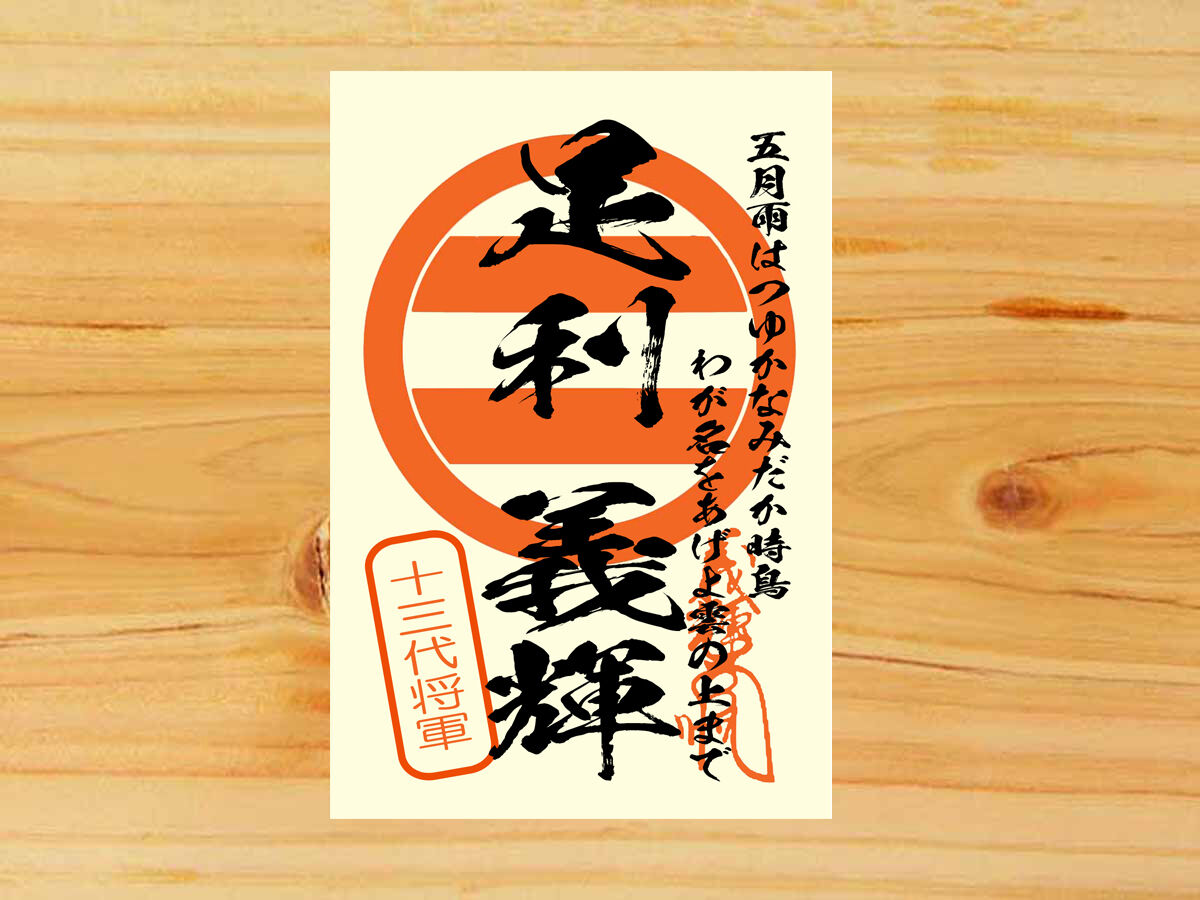 五月雨はつゆかなみだか時鳥
わが名をあげよ雲の上まで
足利義輝
十三代将軍